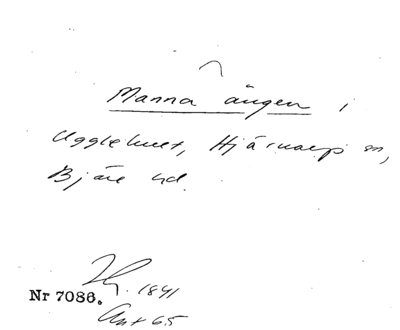 Manna ängen i
Ugglehult, Hjärnarp sn,
Bjäre hd.
Nr 7086.
1841
Ant 65